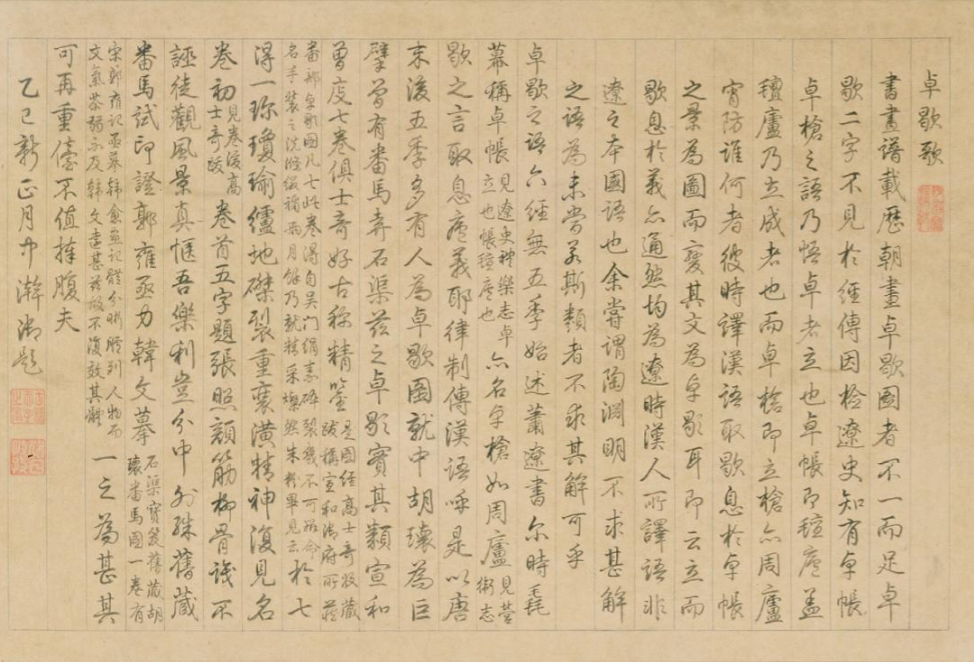 卓歇歌
書畫譜載歷朝畫卓歇圖者不一而足卓
歇二字不見於經傳因檢遼史知有卓帳
卓槍之語乃悟卓者立也卓帳即氊廬蓋
氊廬乃立成者也而卓槍即立槍亦周廬
宵防誰何者彼時譯漢語取歇息於卓帳
之景為圖而變其文為卓歇耳即云立而
歇息於義亦通然均為遼時漢人所譯語非
遼之本國語也余嘗謂陶淵明不求甚解
之語為未當若斯類者不求其解可乎
卓歇之語六經無五季始述蕭遼書尔時毳
幕稱卓帳見遼史禮樂志卓立也帳氊廬也亦名卓槍如周廬見營衛志
歇之言取息意義耶律制傳漢語呼是以唐
末後五季多有人為卓歇圖就中胡瓌為巨
擘曾有番馬弆石渠茲之卓歇實其類宣和
曾庋七卷俱士奇好古稱精鑒是圖經高士奇收藏跋稱宣和御府所藏
番部卓歇圖凡七此卷得自吴门絹素碎裂幾不可収命名手裝之洗滌綴補兩月餘乃就精采燦然朱粉畢見云於七
得一珎瓊瑜纑地磔裂重裹潢精神復見名
卷初見卷後高士奇跋卷首五字題張照顏筋柳骨譏不
誣徒觀風景真愜吾樂利豈分中外殊舊藏
番馬試印證郭雍亟力韓文摹石渠寶笈舊藏胡瓌番馬圖一卷有
宋郭雍記亟摹韓愈畫記體分晰臚列人物而文氣茶弱不及韓文遠甚茲故不復效其顰一之為甚其
可再重儓不值捧腹夫
乙巳新正月中澣御題